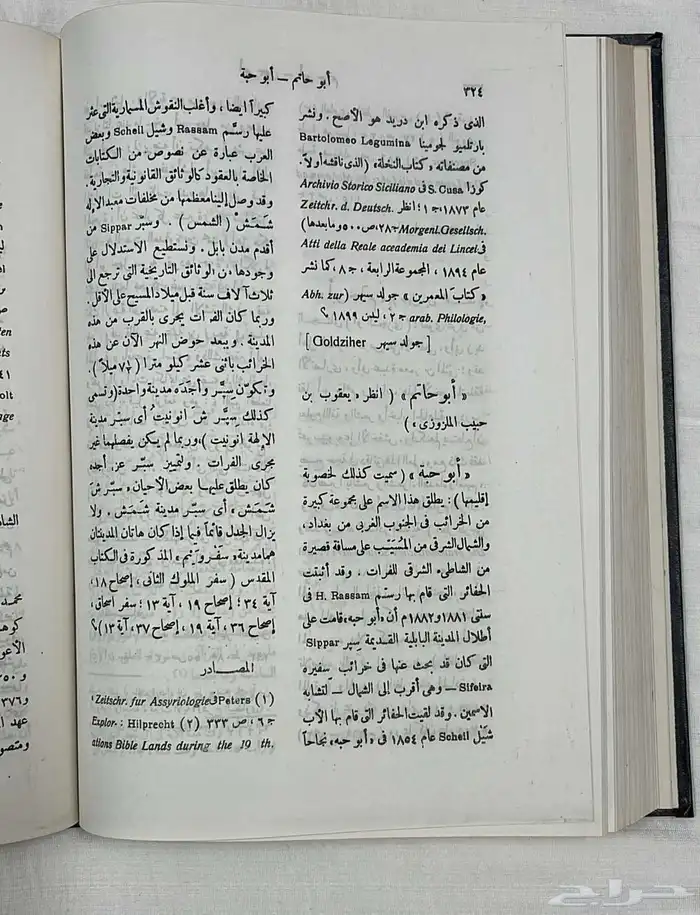 أبو حاتم — أبو حبة
٣٢٤
الذى ذكره ابن دريد هو الأصح. ونشر
بارتلميو لجومينا Bartolomeo Legumina
من مصنفاته «كتاب النخلة» (الذى ناقشه أولا.
كوزا S. Cusa فى Archivio Storico Siciliano
عام ١٨٧٣، ج ١؛ انظر Zeitchr. d. Deutsch.
Morgenl.Gesellsch. ج ٢٨، ص ٥٠٠ وما بعدها)
فى Atti della Reale aceademia dei Lincei
عام ١٨٩٤، المجموعة الرابعة، ج ٨، كما نشر
«كتاب المعمرين» جولد سيهر (Abh. zur
arab. Philologie, ج ٢، ليدن ١٨٩٩ ؟
[ جولد سيهر Goldziher ]
«أبو حاتم» ( انظر «يعقوب بن
حبيب الملزوزى» )
«أبو حبة» ( سميت كذلك لخصوبة
إقليمها ) : يطلق هذا الاسم على مجموعة كبيرة
من الخرائب فى الجنوب الغربى من بغداد،
والشمال الشرقى من المُسَيَّب على مسافة قصيرة
من الشاطىء الشرقى للفرات. وقد أثبتت
الحفائر التى قام بها رسّم H. Rassam فى
سنتى ١٨٨١ و١٨٨٢م أن «أبو حبه» قامت على
أطلال المدينة البابلية القديمة سِپر Sippar
التى كان قد بحث عنها فى خرائب سِفيره
Sifeira — وهى أقرب إلى الشمال — لتشابه
الاسمين. وقد لقيت الحفائر التى قام بها الأب
شَيْل Scheil عام ١٨٥٤ فى «أبو حبه» نجاحاً
كبيراً ايضا، وأغلب النقوش المسمارية التى عثر
عليها رسّم Rassam وشيل Scheil وبعض
العرب عبارة عن نصوص من الكتابات
الخاصة بالعقود كالوثائق القانونية والتجارية.
وقد وصل إلينا معظمها من مخلفات معبد الإله
شَمَشْ ( الشمس ) . وسپّر Sippar من
أقدم مدن بابل. ونستطيع الاستدلال على
وجودها من الوثائق التاريخية التى ترجع الى
ثلاث آلاف سنة قبل ميلاد المسيح على الأقل.
وربما كان الفرات يجرى بالقرب من هذه
المدينة. ويبعد حوض النهر الآن عن هذه
الخرائب باثنى عشر كيلو مترا (٧½ ميلاً).
وتكوّن سِپّر وأجَدَه مدينة واحدة (وتسمى
كذلك سِپَّر شَ أنونيت أى سپّر مدينة
الإلهة أنونيت)، وربما لم يكن يفصلهما غير
مجرى الفرات. ولتمييز سپّر عن أجده
كان يطلق عليها بعض الأحيان «سپّر شَ
شَمَش» أى سپّر مدينة شَمَش. ولا
يزال الجدل قائماً فيما إذا كان هاتان المدينتان
هما مدينة «سَفَرْوَايْم» المذكورة فى الكتاب
المقدس ( سفر الملوك الثانى، إصحاح ١٨،
آية ٣٤ ؛ إصحاح ١٩ ، آية ١٣ ؛ سفر اسحاق،
إصحاح ٣٦، آية ١٩ ، إصحاح ٣٧، آية ١٣)؟
المصادر
(١) Peters فى Zeitschr. fur Assyriologie،
ج ٦، ص ٣٣٣ (٢) Hilprecht : Explor.
ations Bible Lands during the 19 th.